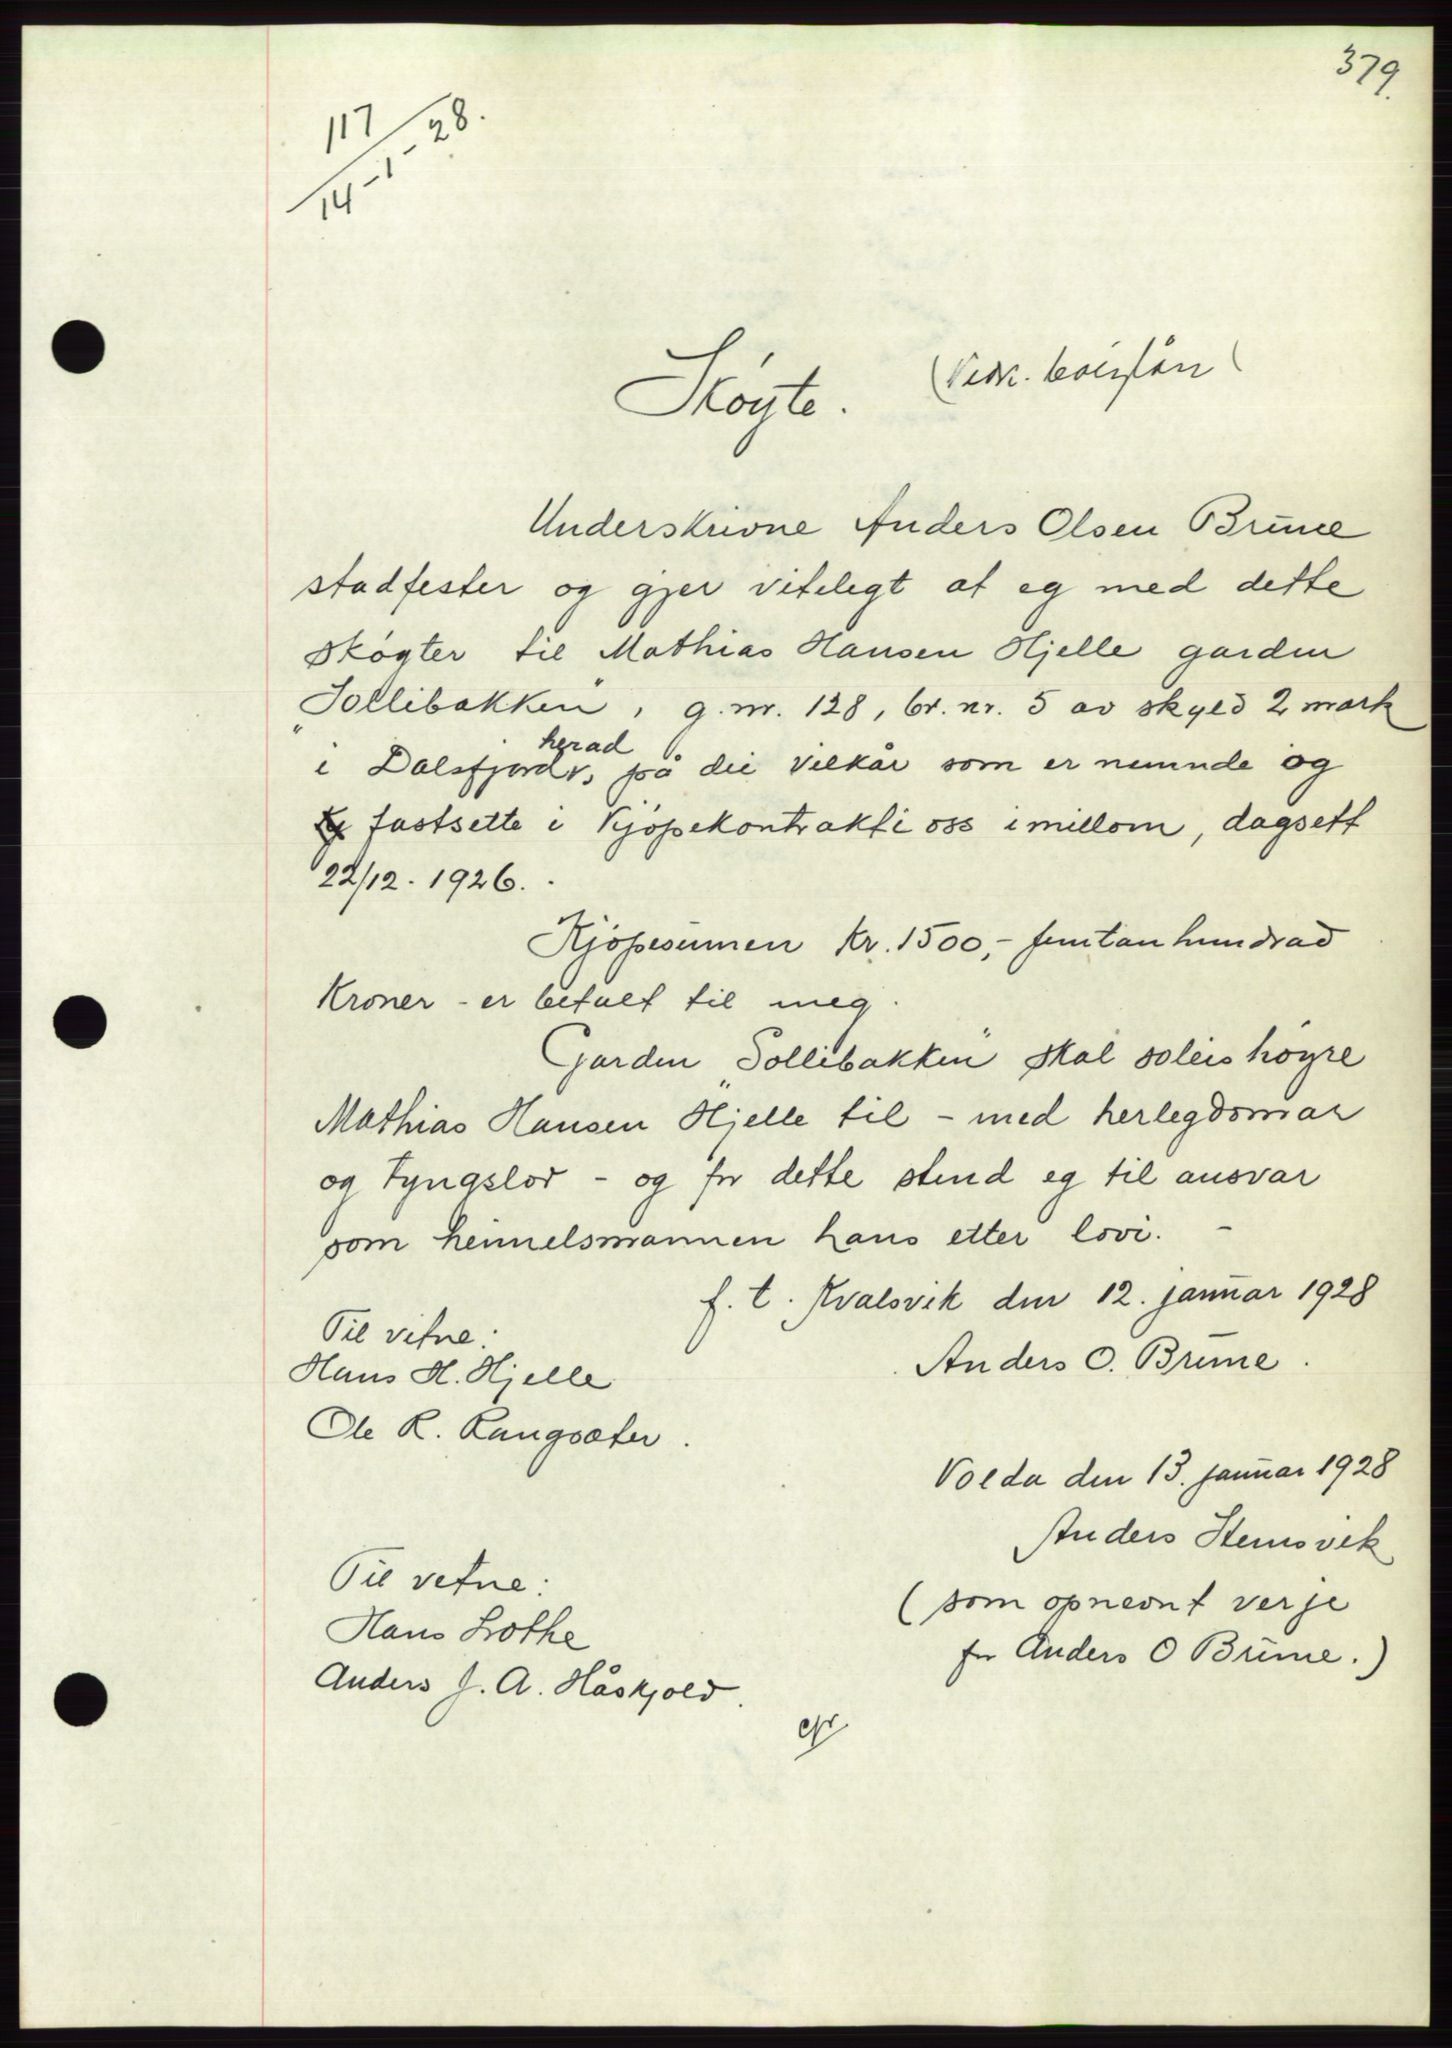 379.
117
14-1-28.
Skøyte.
Underskrivne Anders Olsen Brune
stadfester og gjer vitelegt at eg med dette
skøyter til Mathias Hansen Hjelle garden
"Sollibakken", g.nr. 128, br.nr. 5 av skyld 2 mark
herad
i Dalsfjord, på dei vilkår som er nemnde og
fastsette i kjøpekontrakti oss imillom, dagsett
22/12. 1926.
Kjøpesumen kr. 1500,- femtanhundrad
Kroner - er betalt til meg.
Garden "Sollibakken" skal soleis høyre
Mathias Hansen Hjelle til - med herlegdomar
og tyngslor - og for dette stend eg til ansvar
som heimelsmannen hans etter lovi. -
f. t. Kvalsvik den 12. januar 1928
Til vitne:
Anders O. Brune.
Hans H. Hjelle
Ole R. Rangsæter.
Volda den 13. januar 1928
Anders Stensvik
Til vitne:
(som opnevnt verje
Hans Lothe
for Anders O Brune.)
Anders J. A. Håskjold.